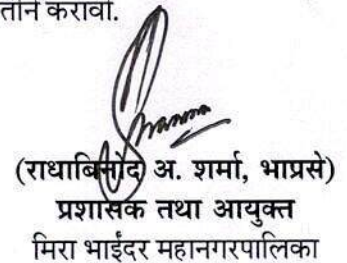 करावी.
(राधाबिनोद अ. शर्मा, भाप्रसे)
प्रशासक तथा आयुक्त
मिरा भाईंदर महानगरपालिका